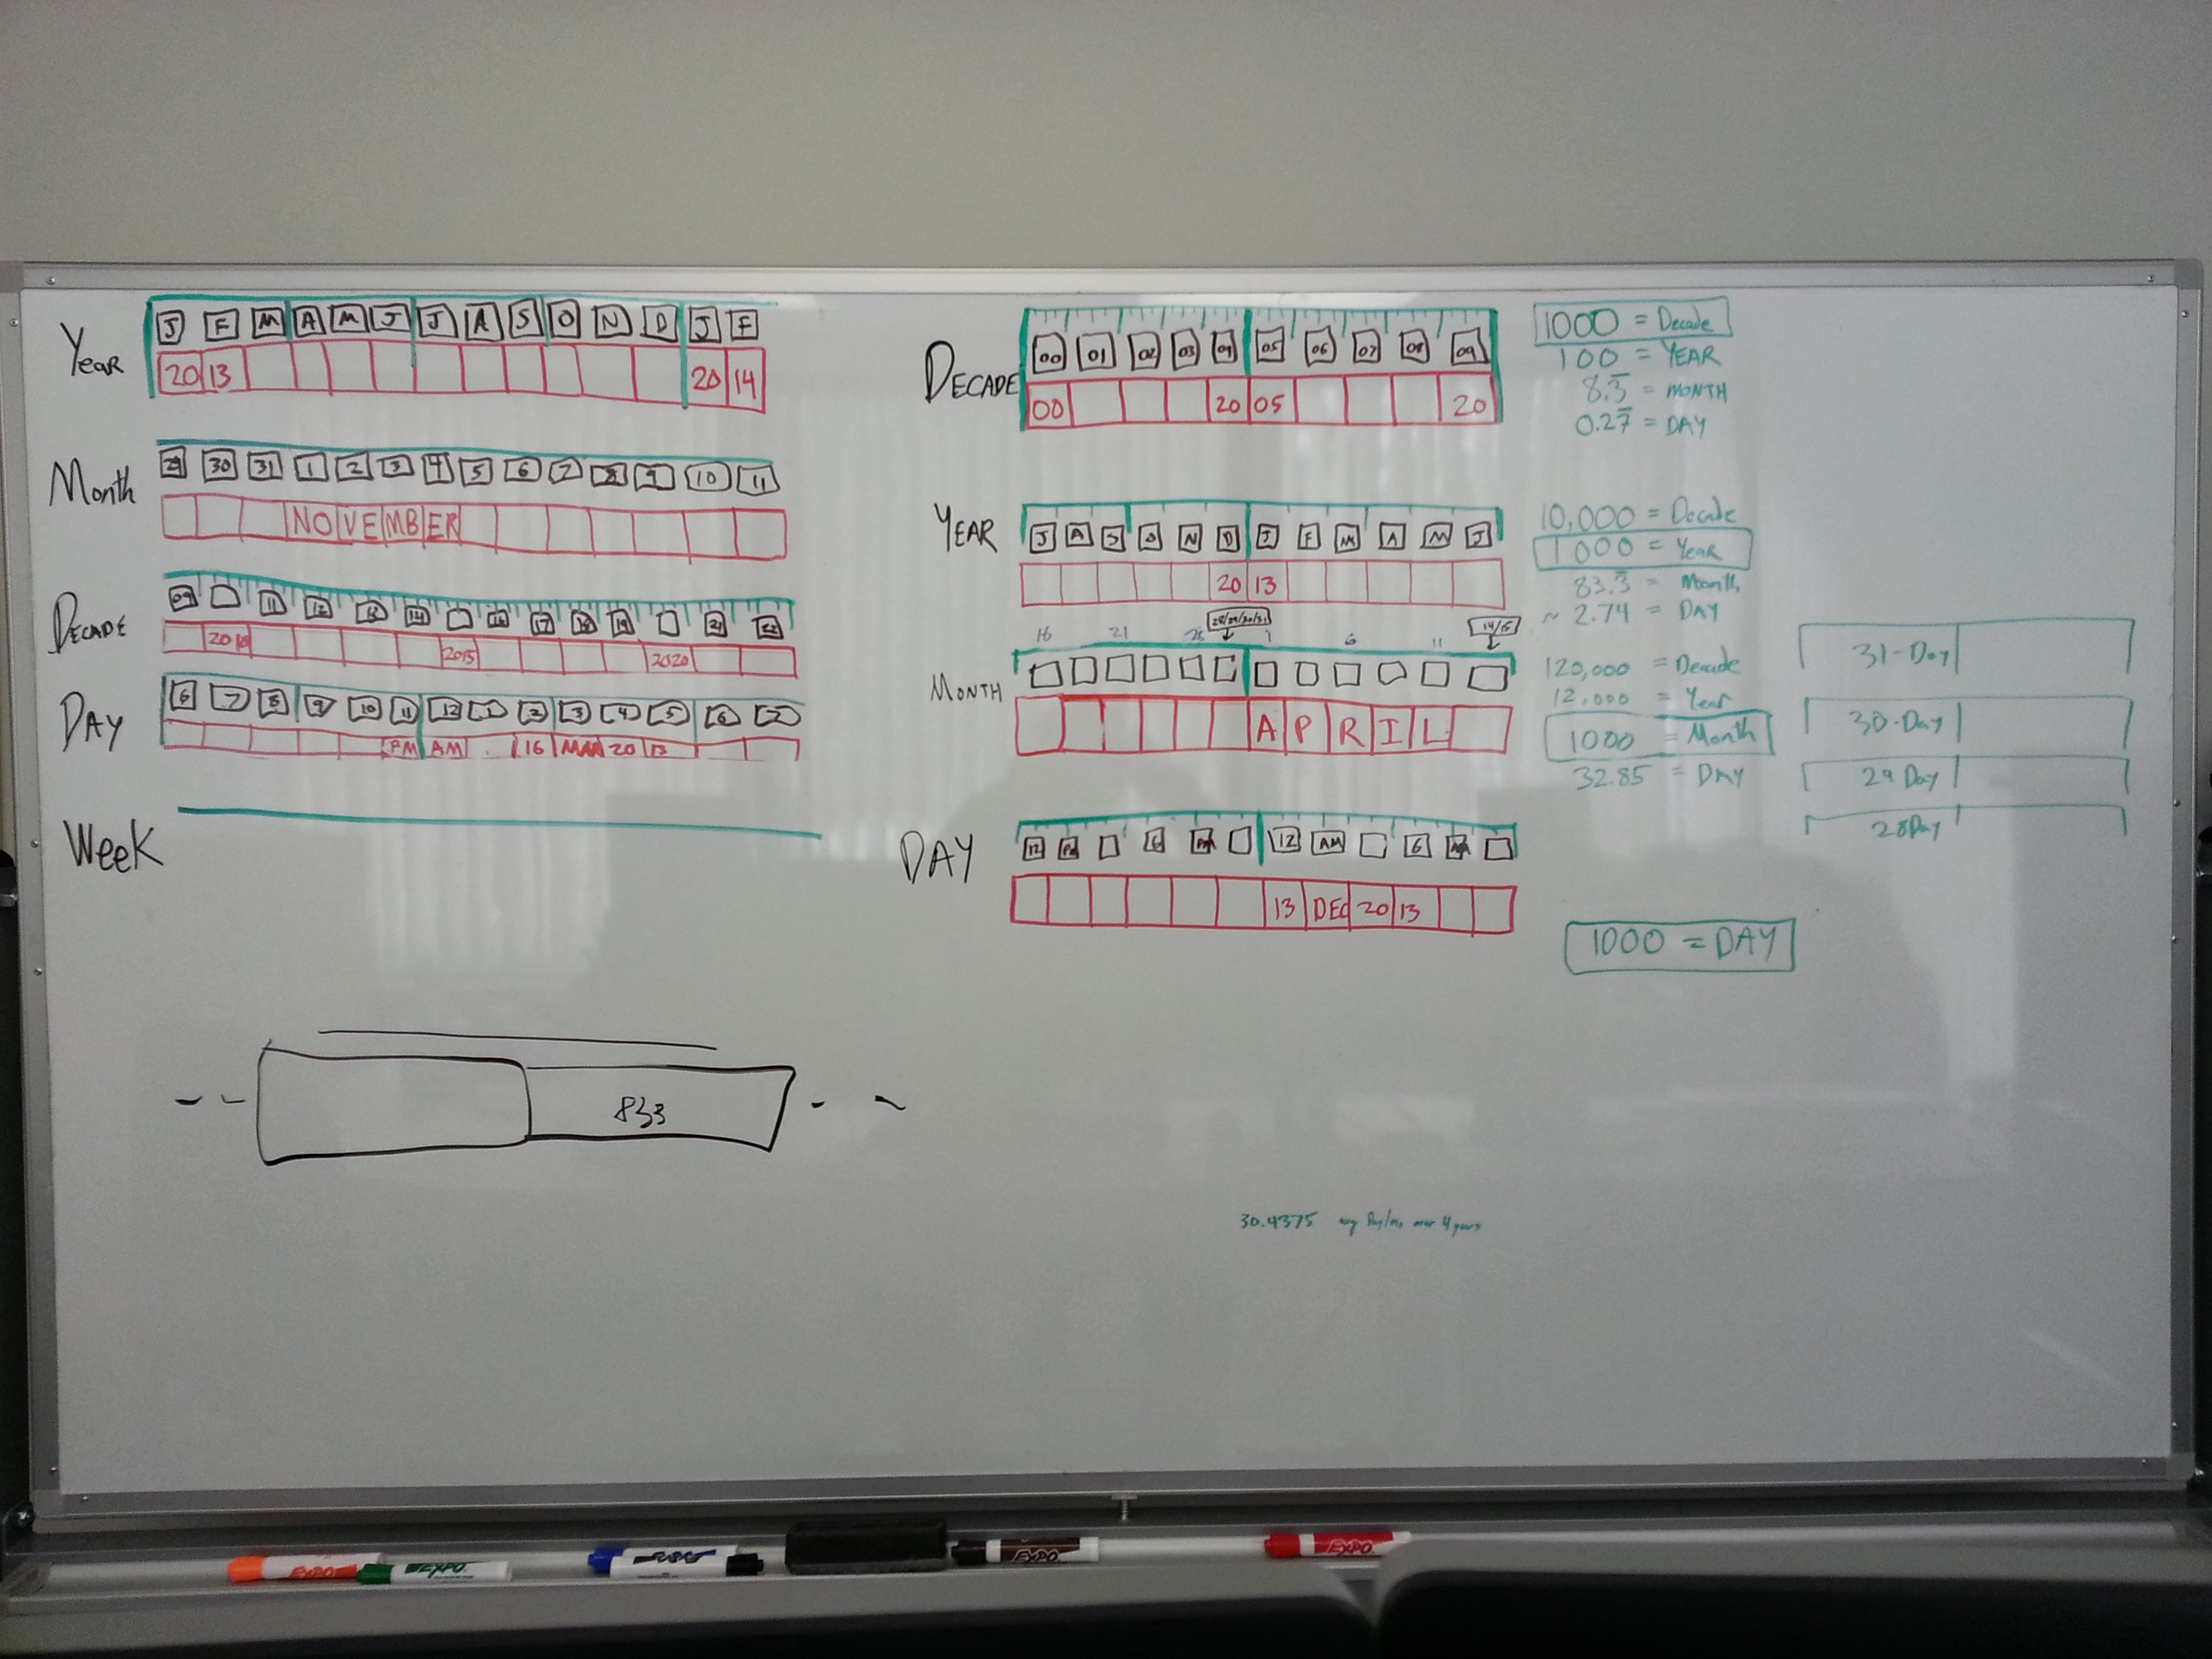 Year
J F M A M J J A S O N D J F
20 13 20 14
Month
29 30 31 1 2 3 4 5 6 7 8 9 10 11
NOVEMBER
DECADE
09 11 12 13 14 16 17 18 19 21 22
2010 2015 2020
DAY
6 7 8 9 10 11 12 1 2 3 4 5 6 7
PM AM 16 MAR 20 13
Week
833
DECADE
00 01 02 03 04 05 06 07 08 09
00 20 05 20
YEAR
J A S O N D J F M A M J
20 13
16 21 26 28/29/30/31 1 6 11 14/15
MONTH
A P R I L
DAY
12 PM 6 PM 12 AM 6 AM
13 DEC 20 13
1000 = Decade
100 = YEAR
8.3̅ = MONTH
0.27̅ = DAY
10,000 = Decade
1000 = Year
83.3̅ = Month
~ 2.74 = DAY
120,000 = Decade
12,000 = Year
1000 = Month
32.85 = DAY
31-Day
30-Day
29 Day
28 Day
1000 = DAY
30.4375 avg Day/mo over 4 years
EXPO
EXPO
EXPO
EXPO